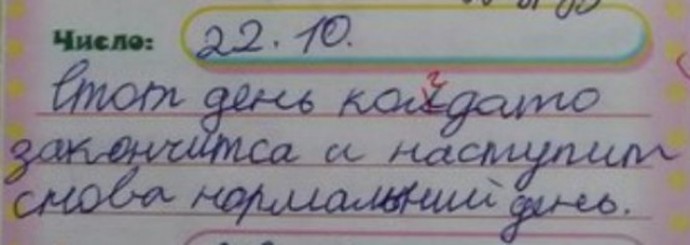 Число: 22.10.
Етот день кокдато
закончитса и наступит
снова нормальний день.